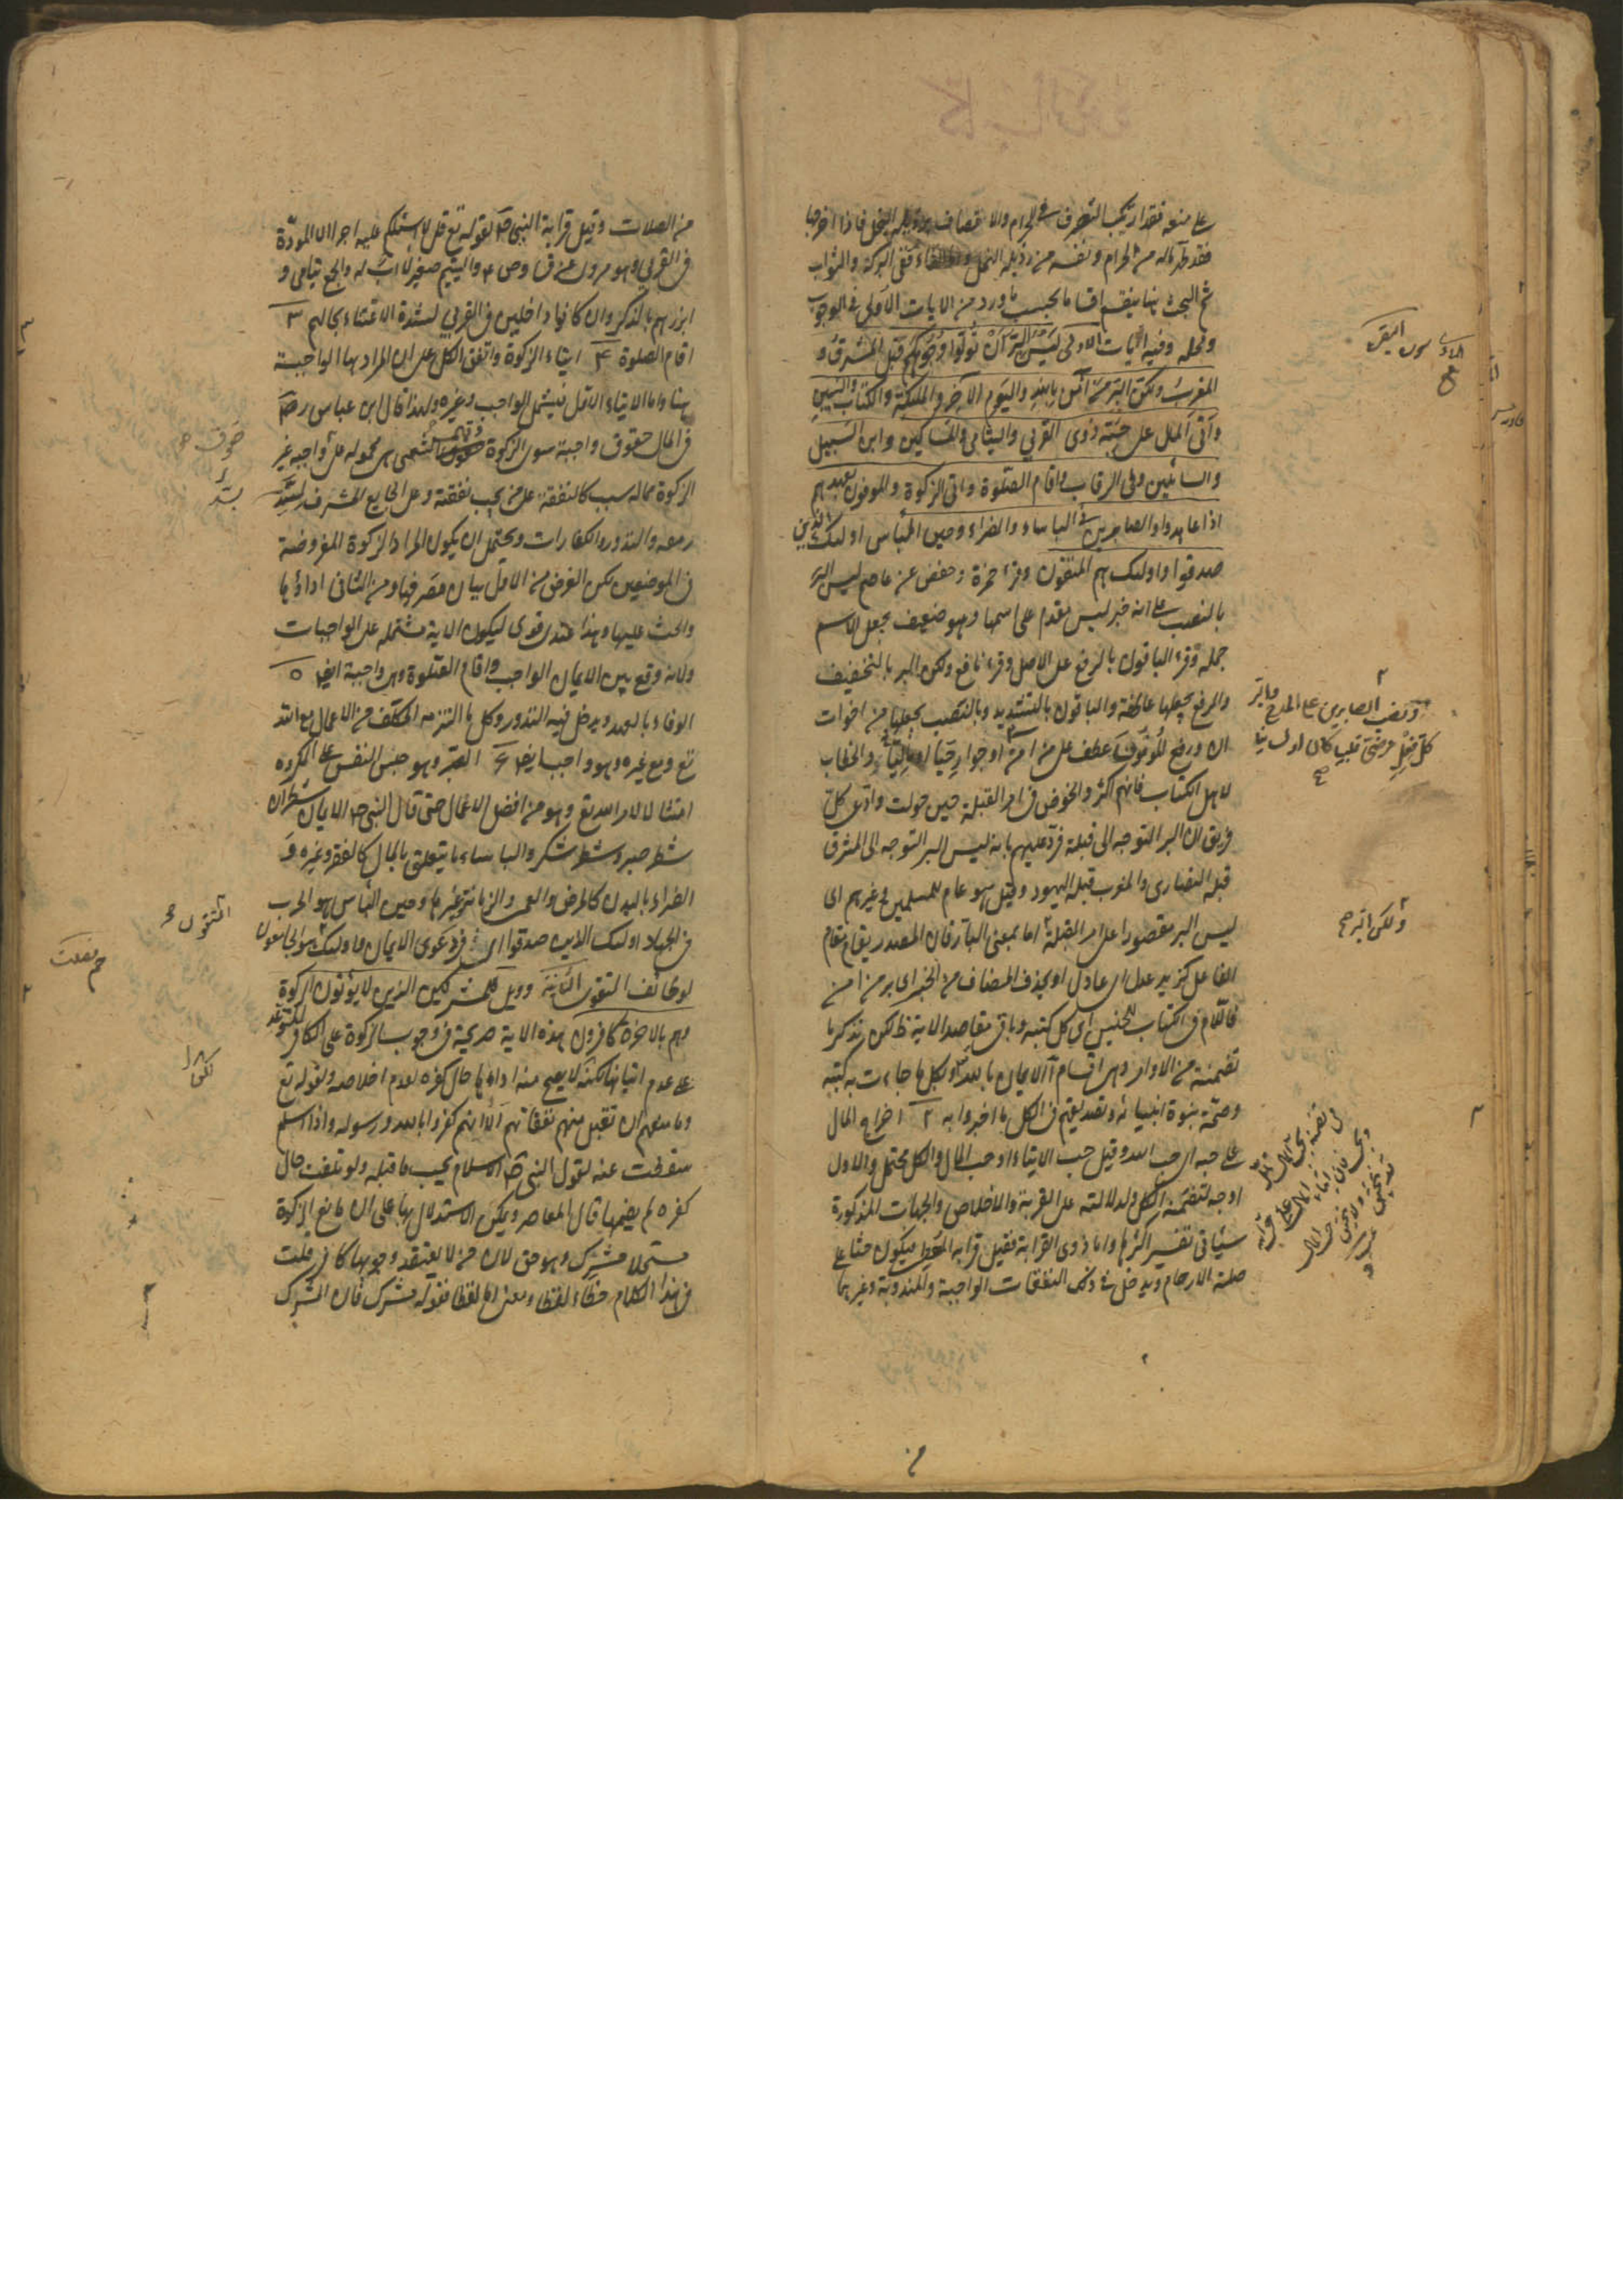 على منعه فقد ارتكب التصرف في الحرام والاتصاف برذيلة البخل فاذا اخرجها
فقد طهر ماله من الحرام ونفسه من رذيلة البخل البركة والثواب
ثم البحث هنا ينقسم اقساما بحسب ما ورد من الايات الاول في الوجوب
ومحله وفيه آيات الاولى لَيْسَ الْبِرَّ اَنْ تُوَلُّوا وُجُوهَكُمْ قِبَلَ الْمَشْرِقِ وَ
الْمَغْرِبِ وَلكِنَّ الْبِرَّ مَنْ آمَنَ بِاللهِ وَالْيَوْمِ الآخِرِ وَالْمَلئِكَةِ وَالْكِتَابِ وَالنَّبِيِّينَ
وَآتَى الْمَالَ عَلَى حُبِّهِ ذَوِى الْقُرْبى وَالْيَتَامى وَالْمَسَاكِينَ وَابْنَ السَّبِيلِ
والسائلين وفى الرقاب واقام الصلوة واتى الزكوة والموفون بعهدهم
اذا عاهدوا والصابرين في الباساء والضراء وحين البأس اولئك الذين
صدقوا واولئك هم المتقون وقرء حمزة وحفص عن عاصم ليس البر
بالنصب على انه خبر ليس مقدم على اسمها وهو ضعيف بجعل الاسم
جملة وقرء الباقون بالرفع على الاصل وقرء نافع ولكن البر بالتخفيف
والرفع بجعلها عاطفة والباقون بالتشديد وبالنصب بجعلها من اخوات
ان ورفع الموفون عطف على من امن والخطاب
لاهل الكتاب فانهم اكثروا الخوض في امر القبلة حين حولت وادعى كل
فريق ان البر التوجه الى قبلته فرد عليهم بانه ليس البر التوجه الى المشرق
قبلة النصارى والمغرب قبلة اليهود وقيل هو عام للمسلمين وغيرهم اى
ليس البر مقصورا على امر القبلة اما بمعنى البار فان المصدر يقام مقام
الفاعل كزيد عدل اى عادل او بحذف المضاف من الخبر اى بر من امن
فاللام في الكتاب للجنس اى كل كتبه وباقى مقاصد الاية ظ لكن نذكر ما
تضمنته من الاوامر وهى اقسام ا الايمان بالله وبكل ما جاءت به كتبه
وصحة نبوة انبيائه وتصديقهم في الكل ما اخبروا به ٢ اخراج المال
على حبه اى حب الله وقيل حب الايتاء او حب المال والكل محتمل والاول
اوجه لتضمنه الكل ولدلالته على القربة والاخلاص والجهات المذكورة
سياتى تفسير اكثرها واما ذوى القرابة فقيل قرابة المعطى فيكون حثا على
صلة الارحام ويدخل في ذلك النفقات الواجبة والمندوبة وغيرهما
البقرة
ونصب الصابرين على المدح
ولكن البر
من الصلات وقيل قرابة النبى ص لقوله تع قل لا اسئلكم عليه اجرا الا المودة
في القربى وهو مروى عن ق و ص ع واليتيم صغير لا اب له والجمع يتامى و
ابرزهم بالذكر وان كانوا داخلين في القربى لشدة الاعتناء بحالهم ٣
اقام الصلوة ٤ ايتاء الزكوة واتفق الكل على ان المراد بها الواجبة
هنا واما الايتاء الاول فيشمل الواجب وغيره ولهذا قال ابن عباس رض
في المال حقوق واجبة سوى الزكوة الشعبى هى محموله على واجبة غير
الزكوة مما له سبب كالنفقة على من يجب نفقته وعلى الجايع المشرف لسد
رمقه والنذور والكفارات ويحتمل ان يكون المراد الزكوة المفروضة
في الموضعين لكن الغرض من الاول بيان مصرفها ومن الثانى اداؤها
والحث عليها وهذا عندى قوى ليكون الاية مشتملة على الواجبات
ولانه وقع بين الايمان الواجب واقام الصلوة وهى واجبة ايض ٥
الوفاء بالعهد ويدخل فيه النذور وكل ما التزمه المكلف من الاعمال مع الله
تع ومع غيره وهو واجب ايض ٦ الصبر وهو حبس النفس على المكروه
امتثالا لامر الله تع وهو من افضل الاعمال حتى قال النبى ص الايمان شطران
شطر صبر وشطر شكر والباساء ما يتعلق بالمال كالفقر وغيره و
الضراء بالبدن كالمرض والعمى والزمانة وغيرها وحين الباس هو الحرب
في الجهاد اولئك الذين صدقوا اى في دعوى الايمان واولئك هم الجامعون
لوظائف التقوى الثانية وويل للمشركين الذين لا يؤتون الزكوة
وهم بالاخرة كافرون هذه الاية صريحة في وجوب الزكوة على الكافر للتوعد
على عدم ايتائها لكنه لا يصح منه اداؤها حال كفره لعدم اخلاصه ولقوله تع
وما منعهم ان تقبل منهم نفقاتهم الا انهم كفروا بالله ورسوله واذا اسلم
سقطت عنه لقول النبى ص الاسلام يجب ما قبله ولو تلفت حال
كفره لم يضمنها قال المعاصر ويمكن الاستدلال بها على ان مانع الزكوة
مستحلا مشرك وهو حق لان من لا يعتقد وجوبها كافر قلت
في هذا الكلام خطاء لفظا ومعنى اما لفظا فقوله مشرك فان المشرك
حقوق
المتقون
حم فصلت